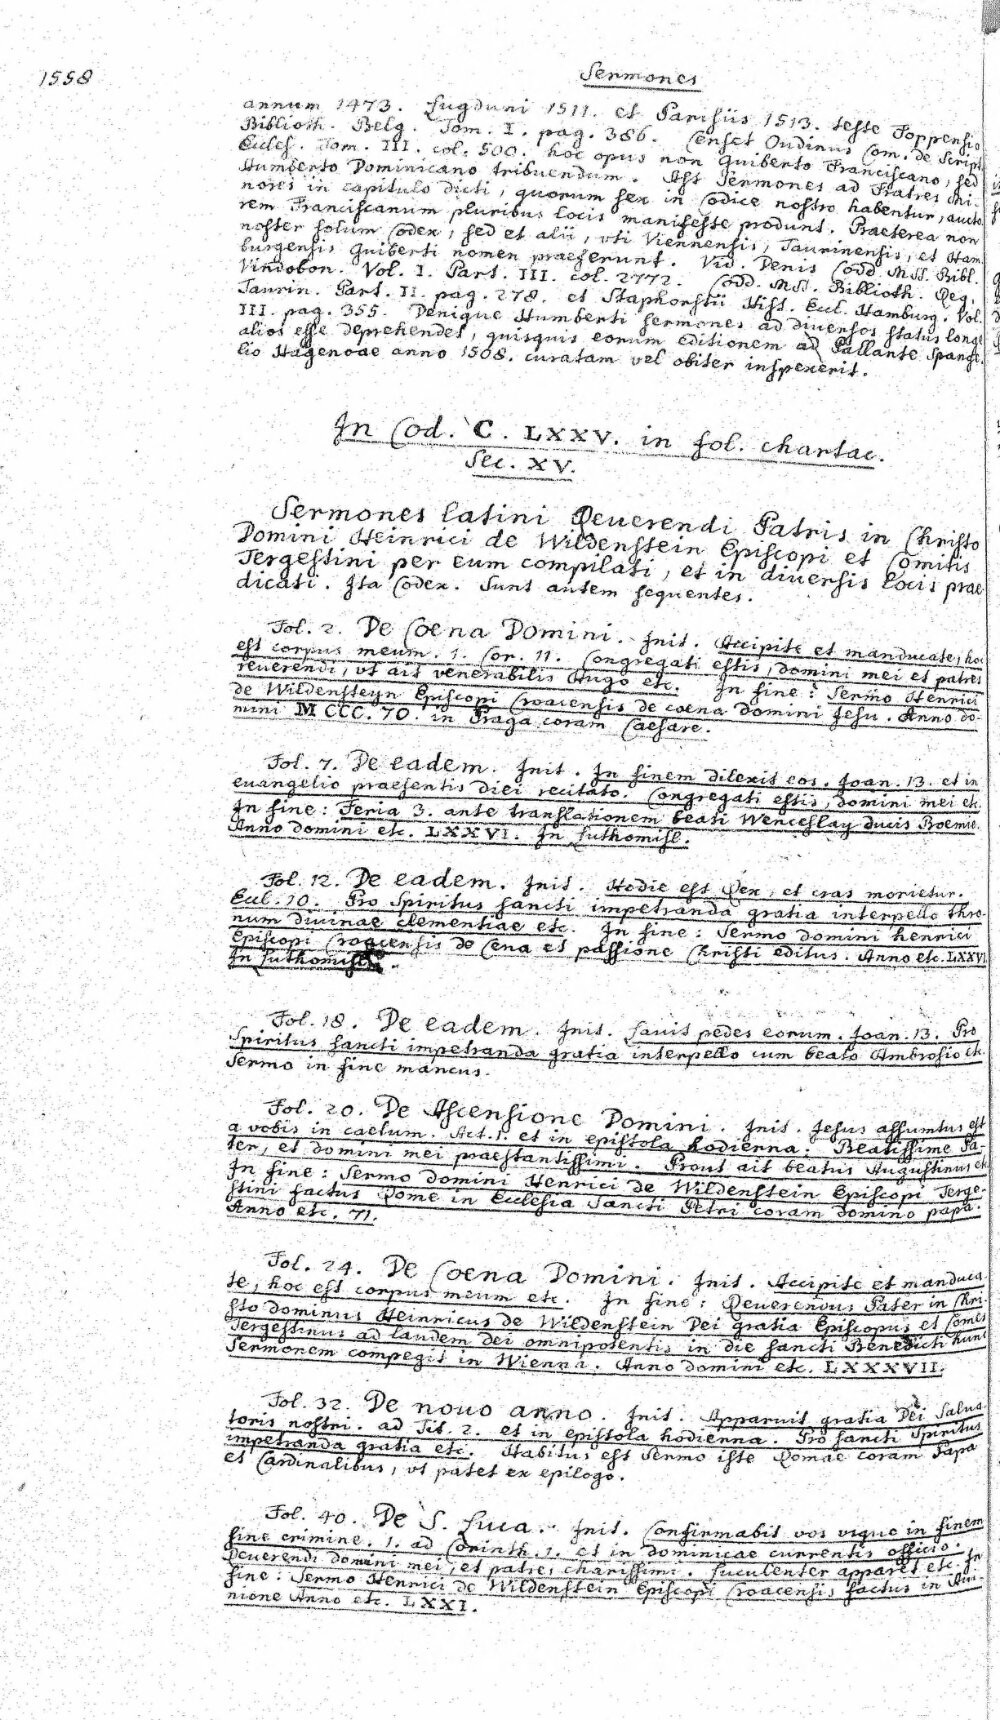 1558
Sermones
annum 1473. Lugduni 1511. et Parisiis 1513. teste Foppensio
Biblioth. Belg. Tom. I. pag. 386. Censet Oudinus Com. de Script.
Eccles. Tom. III. col. 500. hoc opus non Guiberto Franciscano, sed
Humberto Dominicano tribuendum. Ast Sermones ad Fratres Mi-
nores in capitulo dicti, quorum sex in Codice nostro habentur, aucto
rem Franciscanum pluribus locis manifeste produnt. Praeterea non
noster solum Codex, sed et alii, uti Viennensis, Taurinensis, et Ham
burgensis Guiberti nomen praeferunt. Vid. Denis Codd. MSS. Bibl.
Vindobon. Vol. I. Part. III. col. 2772. Codd. MSS. Biblioth. Reg.
Taurin. Part. II. pag. 278. et Staphorstii Hist. Eccl. Hamburg. Vol.
III. pag. 355. Denique Humberti sermones ad diuersos status longe
alios esse deprehendet, quisquis eorum editionem ad Pallante Spange
lio Hagenoae anno 1508. curatam vel obiter inspexerit.
In Cod. C. LXXV. in fol. chartac.
Sec. XV.
Sermones latini Reuerendi Patris in Christo
Domini Heinrici de Wildenstein Episcopi et Comitis
Tergestini per eum compilati, et in diuersis locis prae
dicati. Ita Codex. Sunt autem sequentes.
Fol. 2. De Coena Domini. Init. Accipite et manducate, hoc
est corpus meum. 1. Cor. 11. Congregati estis, domini mei et patres
reuerendi, ut ait venerabilis Hugo etc. In fine: Sermo Henrici
de Wildensteyn Episcopi Croacensis de coena domini Jesu. Anno do-
mini MCCC.70. in Praga coram Caesare.
Fol. 7. De eadem. Init. In finem dilexit eos. Joan. 13. et in
euangelio praesentis diei recitato. Congregati estis, domini mei etc.
In fine: Feria 3. ante translationem beati Wenceslay ducis Boemie.
Anno domini etc. LXXVI. In Luthomisl.
Fol. 12. De eadem. Init. Hodie est Rex, et cras morietur.
Eccl. 10. Pro Spiritus sancti impetranda gratia interpello thro-
num diuinae clementiae etc. In fine: Sermo domini henrici
Episcopi Croacensis de Cena et passione Christi editus. Anno etc. LXXVI
In Luthomisl.
Fol. 18. De eadem. Init. Lauit pedes eorum. Joan. 13. Pro
Spiritus sancti impetranda gratia interpello cum beato Ambrosio etc.
Sermo in fine mancus.
Fol. 20. De Ascensione Domini. Init. Jesus assumtus est
a vobis in caelum. Act. 1. et in epistola hodierna: Beatissime Pa-
ter, et domini mei praestantissimi. Prout ait beatus Augustinus etc
In fine: Sermo domini Henrici de Wildenstein Episcopi Terge-
stini factus Rome in Ecclesia Sancti Petri coram domino papa.
Anno etc. 71.
Fol. 24. De Coena Domini. Init. Accipite et manduca
te, hoc est corpus meum etc. In fine: Reuerendus Pater in Chri-
sto dominus Heinricus de Wildenstein Dei gratia Episcopus et Comes
Tergestinus ad laudem dei omnipotentis in die sancti Benedicti hunc
Sermonem compegit in Wienna. Anno domini etc. LXXXVII.
Fol. 32. De nouo anno. Init. Apparuit gratia Dei Salua
toris nostri. ad Tit. 2. et in epistola hodierna. Pro sancti Spiritus
impetranda gratia etc. Habitus est Sermo iste Romae coram Papa
et Cardinalibus, ut patet ex epilogo.
Fol. 40. De S. Luca. Init. Confirmabit vos usque in finem
sine crimine. 1. ad Corinth. 1. et in dominicae currentis officio.
Reuerendi domini mei, et patres charissimi. Luculenter apparet etc. In
fine: Sermo Henrici de Wildenstein Episcopi Croacensis factus in Aui-
nione Anno etc. LXXI.